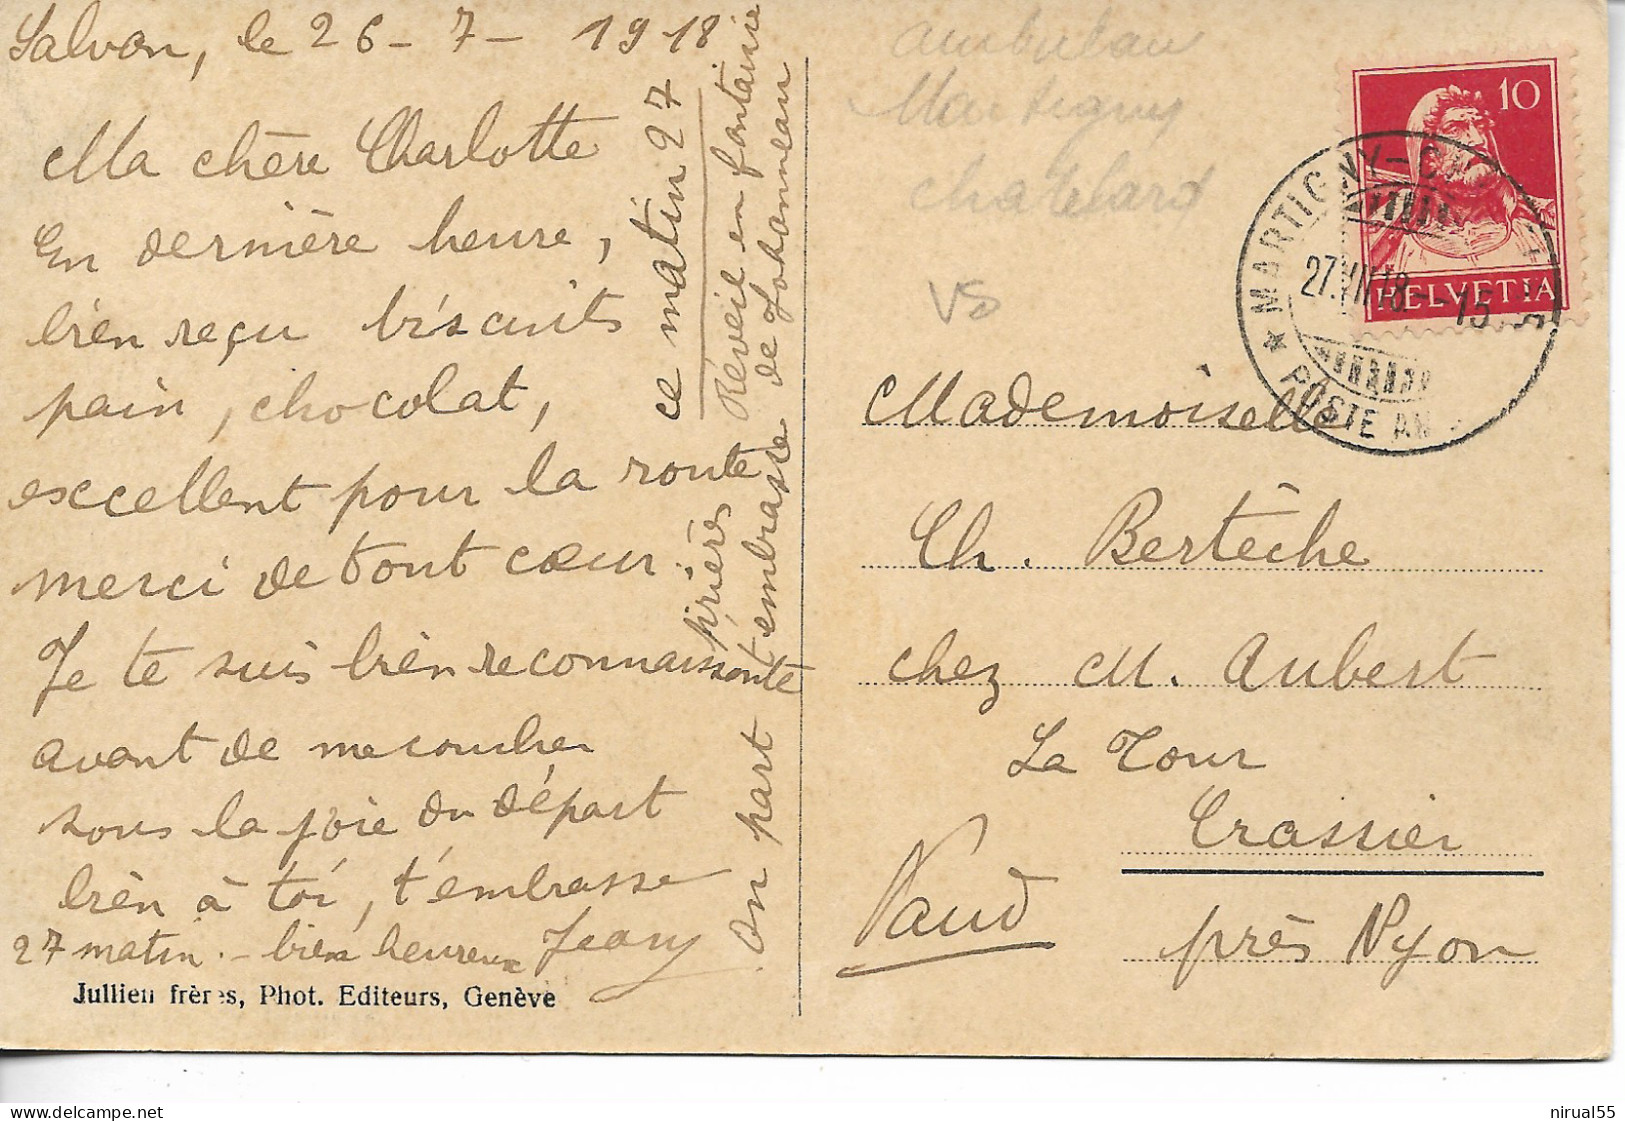 Salvan, le 26 - 7 - 1918
Ma chère Charlotte
En dernière heure,
bien reçu biscuits
pain, chocolat,
excellent pour la route
merci de tout cœur.
Je te suis bien reconnaissante
avant de me coucher
sous la joie du départ
bien à toi, t'embrasse
27 matin. - bien heureux Jeany
ce matin 27
Réveil en fontaine
prières de
On part t'embrasse
Jullien frères, Phot. Editeurs, Genève
ambulan
Martigny
Chatelard
VS
10
HELVETIA
MARTIGNY-CH
27.VII.18.-15
POSTE AM
Mademoiselle
Ch. Bertèche
chez M. Aubert
La Tour
Crassier
Vaud
près Nyon
nirual55